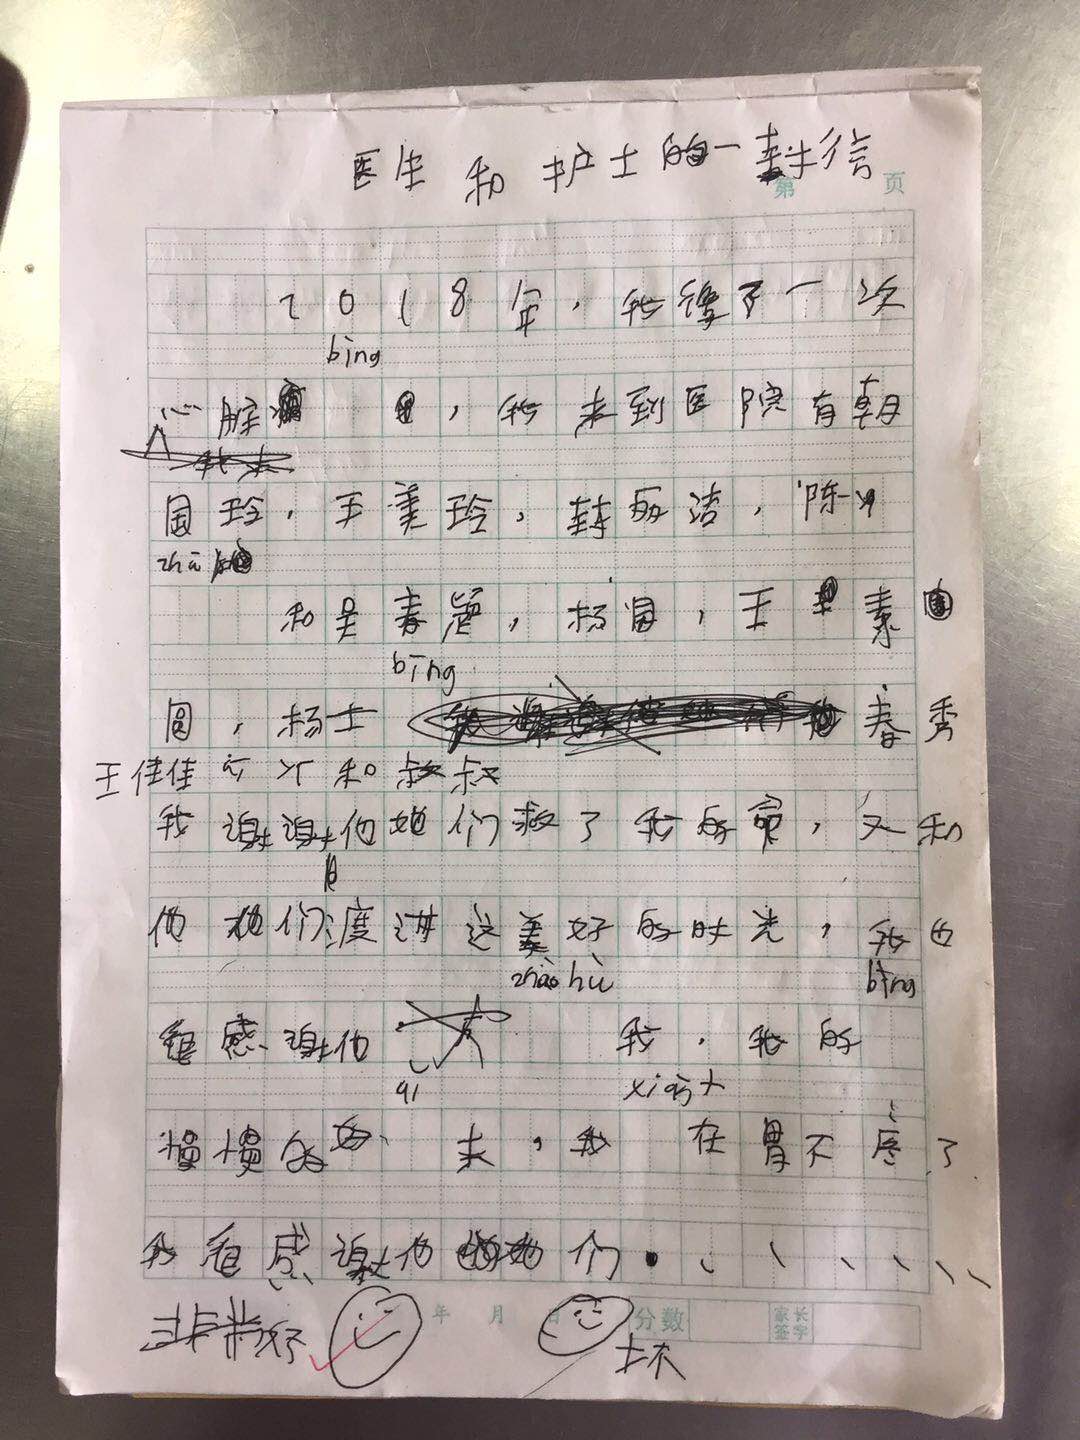 医生和护士的一封信
第 页
2018年，我得了一次
bìng
心脏，我来到医院有朝
国玲，王美玲，封丽洁，陈
zhū
和吴春莲，杨园，王素
bìng
圆，杨士春秀
王佳佳和叔叔
我谢谢他她们救了我的命，又和
他她们度过这美好的时光，我也
zhào hù bìng
很感谢他我，我的
qǐ xiàn
慢慢的好来，我在胃不疼了
我很感谢他她们
非常好了
年 月 日 分数 家长签字
坏